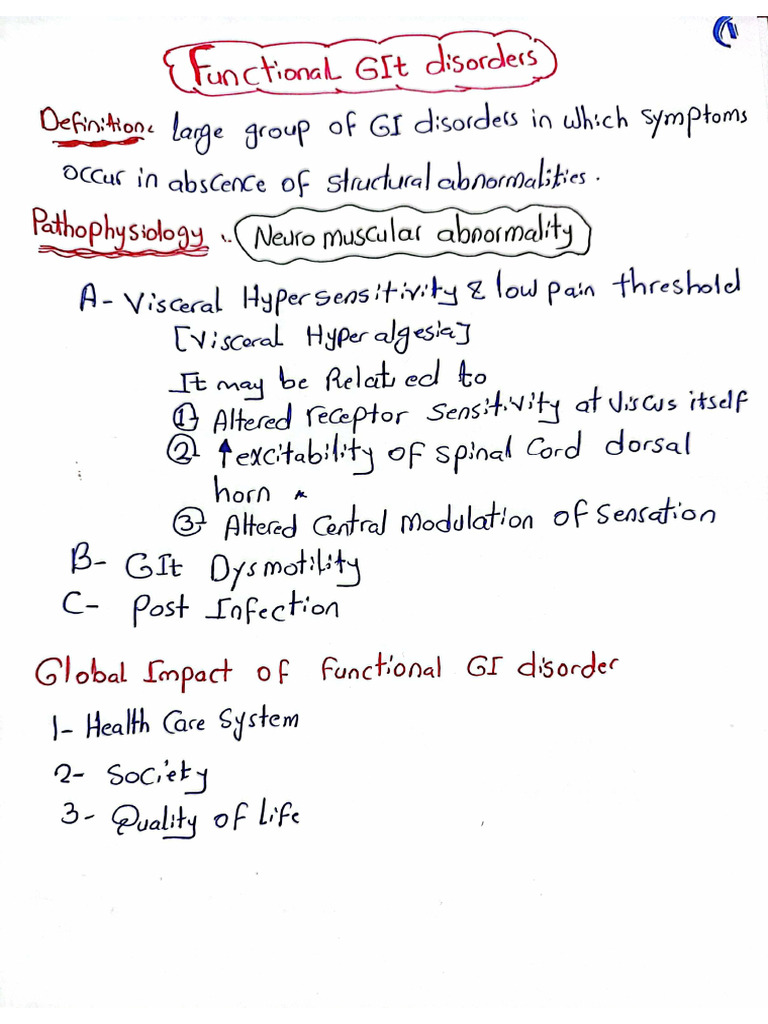 Functional GIt disorders
Definition: large group of GI disorders in which symptoms
occur in abscence of structural abnormalities.
Pathophysiology : Neuromuscular abnormality
A- Visceral Hypersensitivity & low pain threshold
[Visceral Hyperalgesia]
It may be Related to
① Altered receptor sensitivity at viscus itself
② ↑ excitability of spinal cord dorsal
horn
③ Altered Central Modulation of sensation
B- GIt Dysmotility
C- Post Infection
Global Impact of functional GI disorder
1- Health Care System
2- Society
3- Quality of Life